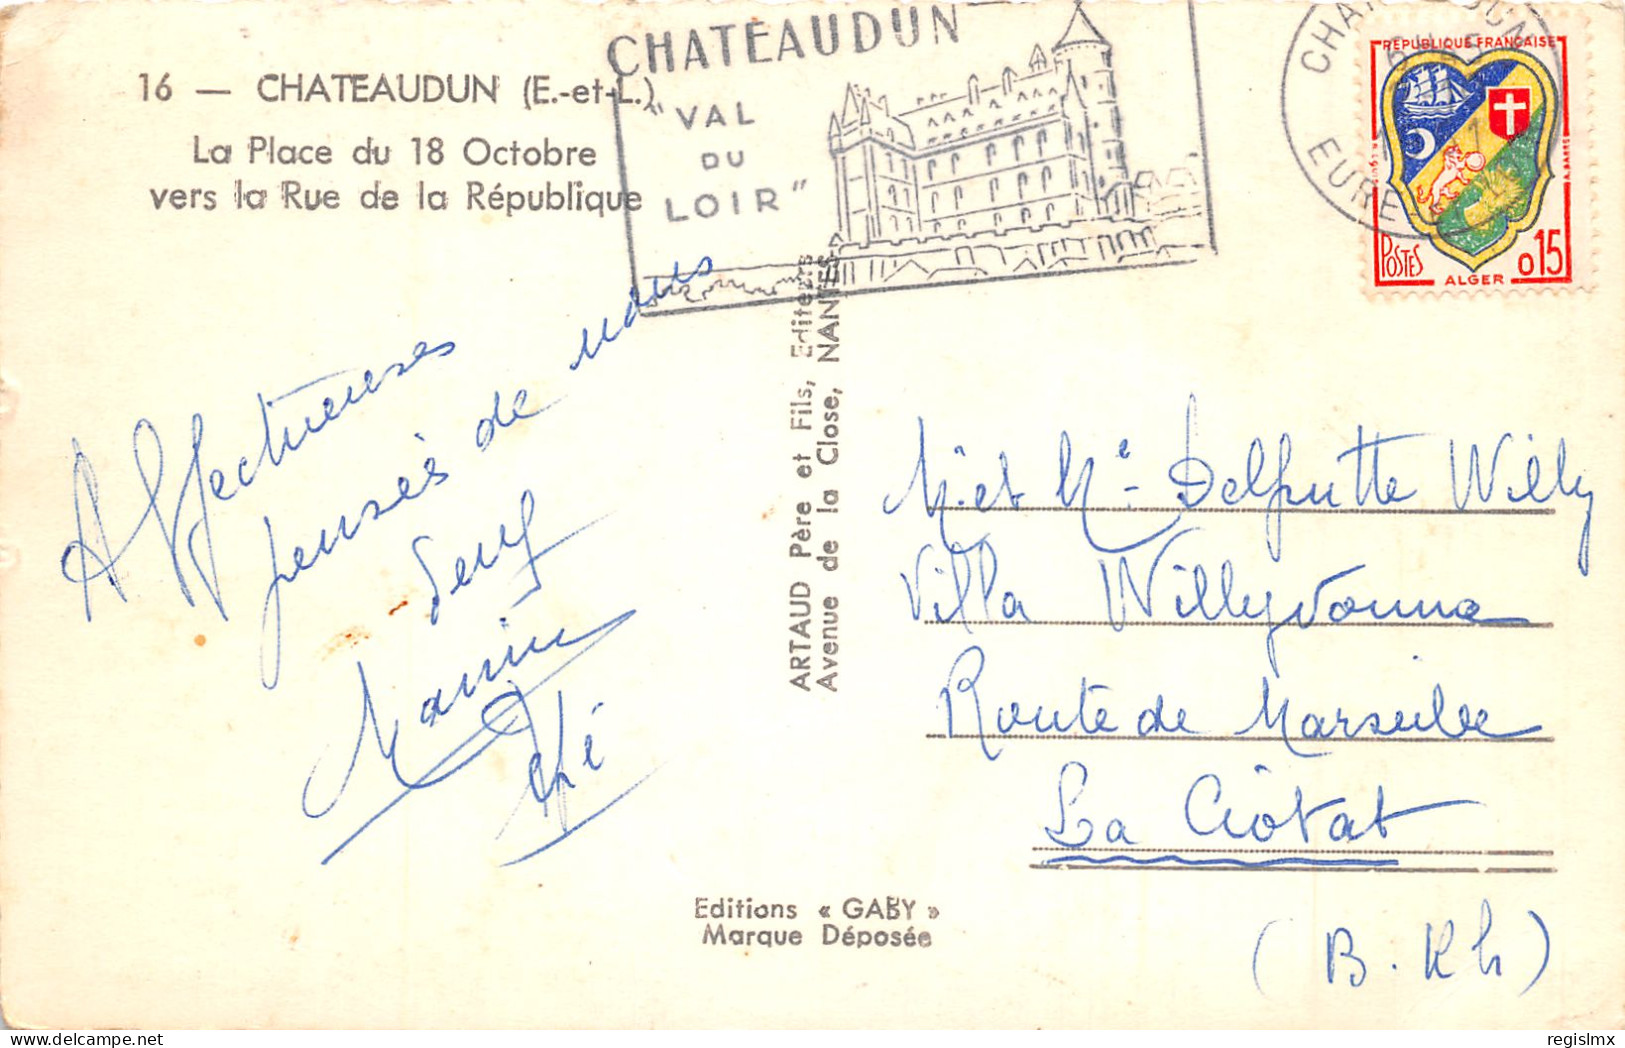 16 — CHATEAUDUN (E.-et-L.)
La Place du 18 Octobre
vers la Rue de la République
CHATEAUDUN
"VAL
DU
LOIR"
EURE
REPUBLIQUE FRANÇAISE
POSTES
ALGER
0,15
Affectueuses
pensées de nous
ARTAUD Père et Fils, Editeurs
Avenue de la Close, NANTES
M. et Me Delputte Willy
Villa Willyvonne
Route de Marseille
La Ciotat
(B. Rh)
Editions « GABY »
Marque Déposée
regislmx